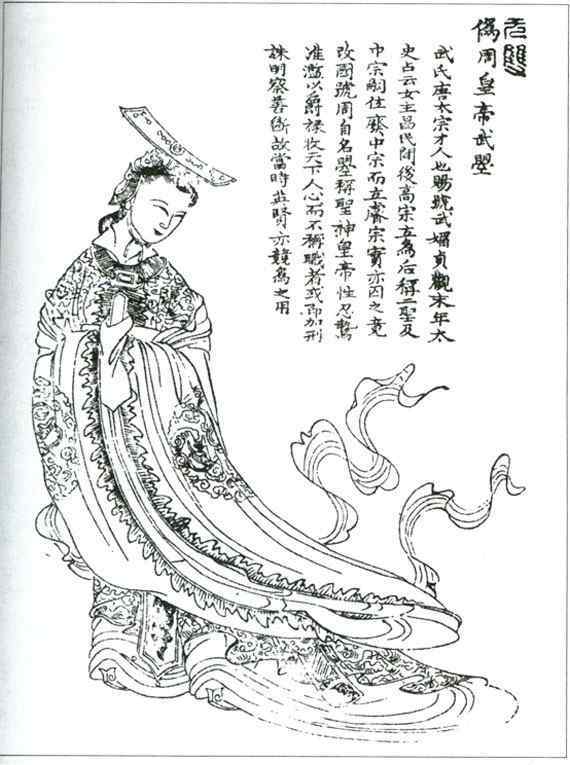 无雙
偽周皇帝武曌
武氏唐太宗才人也賜號武媚貞觀末年太
史占云女主昌代閉後高宗立為后稱二聖及
中宗嗣位廢中宗而立睿宗實亦囚之竟
改國號周自名曌稱聖神皇帝性忍鷙
雖濫以爵祿收天下人心而不稱職者或即加刑
誅明察善斷故當時英賢亦競為之用